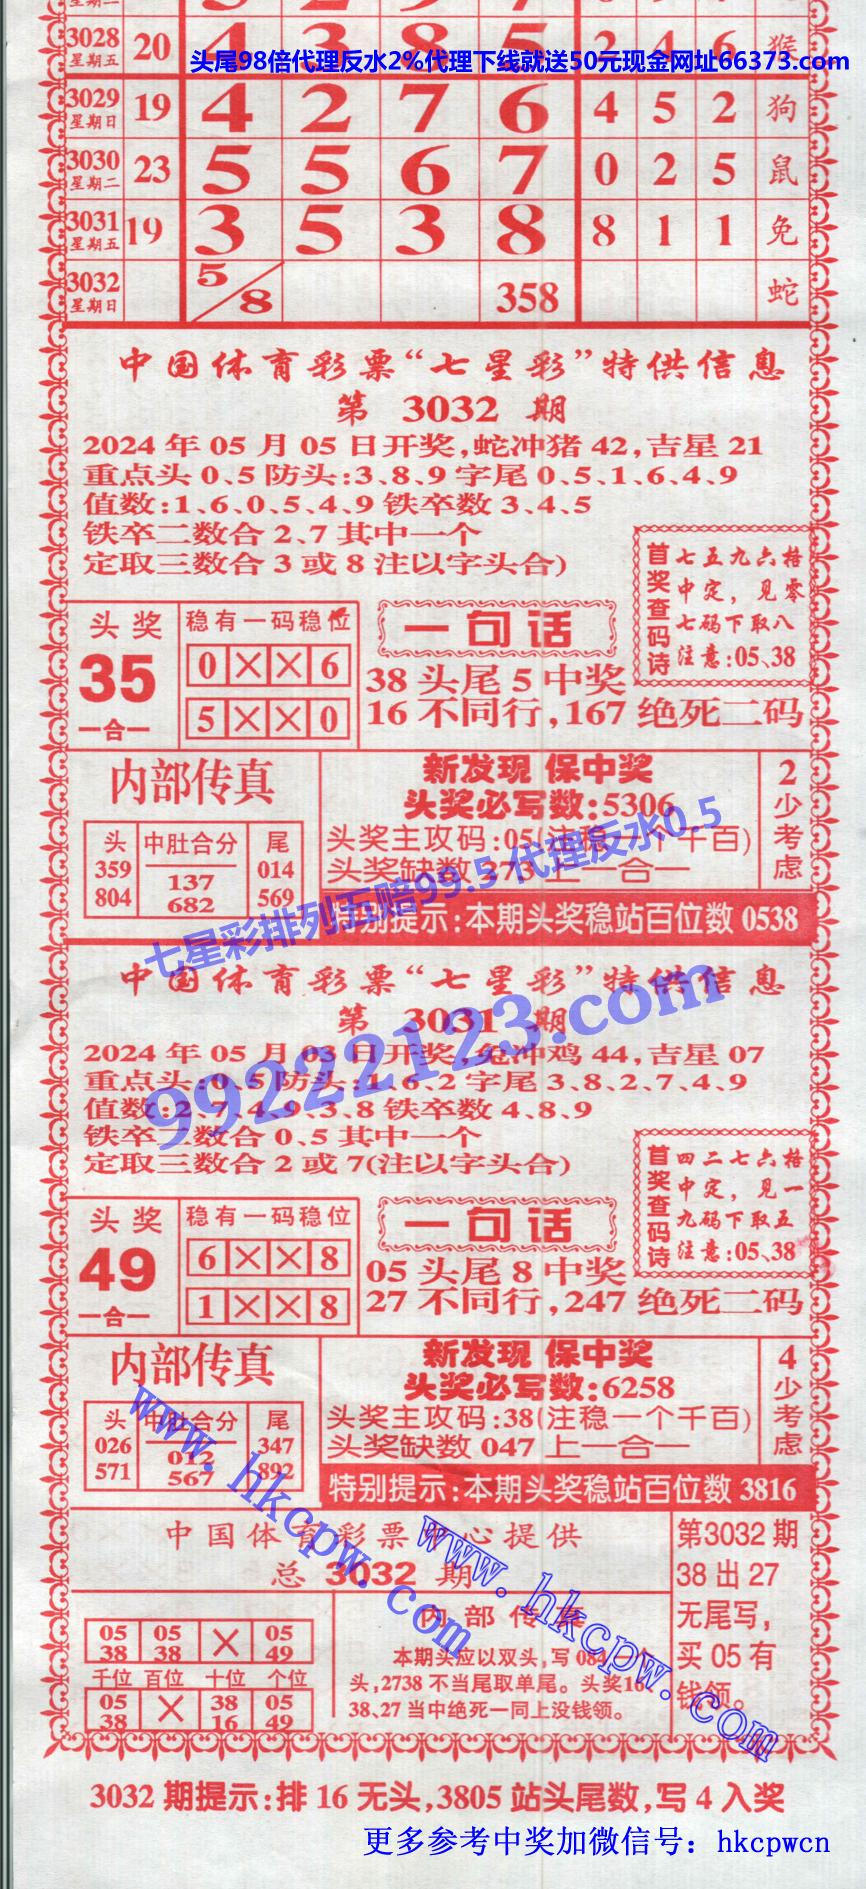 3028 星期五 20 4 3 8 5 2 4 6 猴
头尾98倍代理反水2%代理下线就送50元现金网址66373.com
3029 星期日 19 4 2 7 6 4 5 2 狗
3030 星期二 23 5 5 6 7 0 2 5 鼠
3031 星期五 19 3 5 3 8 8 1 1 兔
3032 星期日 5/8 358 蛇
中国体育彩票“七星彩”特供信息
第 3032 期
2024 年 05 月 05 日开奖,蛇冲猪 42,吉星 21
重点头 0、5 防头:3、8、9 字尾 0、5、1、6、4、9
值数:1、6、0、5、4、9 铁卒数 3、4、5
铁卒二数合 2、7 其中一个
定取三数合 3 或 8 注以字头合)
首奖查码诗
七五九六格
中定，见零
七码下取八
注意:05、38
头奖
35
一合一
稳有一码稳位
0 × × 6
5 × × 0
一句话
38 头尾 5 中奖
16 不同行,167 绝死二码
内部传真
头 中肚合分 尾
359 137 014
804 682 569
新发现 保中奖
头奖必写数:5306
头奖主攻码:05(注稳一个千百)
头奖缺数 273 上一合一
2少考虑
特别提示:本期头奖稳站百位数 0538
七星彩排列五赔99.5 代理反水0.5
中国体育彩票“七星彩”特供信息
第 3031 期
99222123.com
2024 年 05 月 03 日开奖,兔冲鸡 44,吉星 07
重点头:0、5 防头:1、6、2 字尾 3、8、2、7、4、9
值数:2、7、4、9、3、8 铁卒数 4、8、9
铁卒二数合 0、5 其中一个
定取三数合 2 或 7(注以字头合)
首奖查码诗
四二七六格
中定，见一
九码下取五
注意:05、38
头奖
49
一合一
稳有一码稳位
6 × × 8
1 × × 8
一句话
05 头尾 8 中奖
27 不同行,247 绝死二码
内部传真
头 中肚合分 尾
026 012 347
571 567 892
新发现 保中奖
头奖必写数:6258
头奖主攻码:38(注稳一个千百)
头奖缺数 047 上一合一
4少考虑
特别提示:本期头奖稳站百位数 3816
www.hkcpw.com
www.hkcpw.com
中国体育彩票中心提供
总 3032 期
05 38 05 38 × 05 49
千位 百位 十位 个位
05 38 × 38 16 05 49
内部传真
本期头应以双头,写 084 一个
头,2738 不当尾取单尾。头奖16、
38、27 当中绝死一同上没钱领。
第3032 期
38 出 27
无尾写,
买 05 有
钱领。
3032 期提示:排 16 无头,3805 站头尾数,写 4 入奖
更多参考中奖加微信号：hkcpwcn